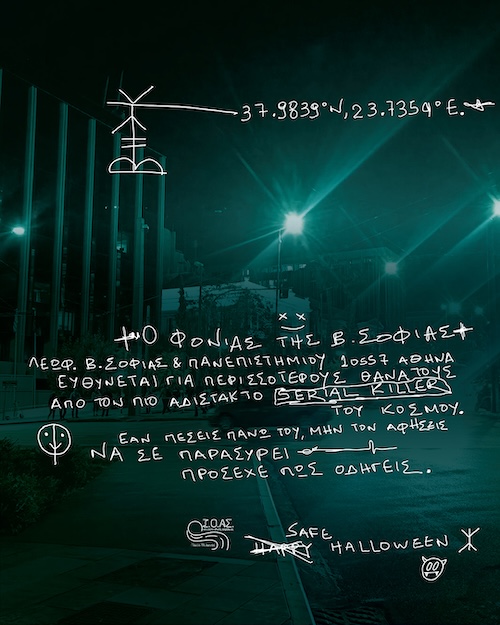 37.9839°N, 23.7354°E.
Ο ΦΟΝΙΑΣ ΤΗΣ Β. ΣΟΦΙΑΣ
ΛΕΩΦ. Β. ΣΟΦΙΑΣ & ΠΑΝΕΠΙΣΤΗΜΙΟΥ 10557 ΑΘΗΝΑ
ΕΥΘΥΝΕΤΑΙ ΓΙΑ ΠΕΡΙΣΣΟΤΕΡΟΥΣ ΘΑΝΑΤΟΥΣ
ΑΠΟ ΤΟΝ ΠΙΟ ΑΔΙΣΤΑΚΤΟ SERIAL KILLER
ΤΟΥ ΚΟΣΜΟΥ.
ΕΑΝ ΠΕΣΕΙΣ ΠΑΝΩ ΤΟΥ, ΜΗΝ ΤΟΝ ΑΦΗΣΕΙΣ
ΝΑ ΣΕ ΠΑΡΑΣΥΡΕΙ
ΠΡΟΣΕΧΕ ΠΩΣ ΟΔΗΓΕΙΣ.
Ι.Ο.ΑΣ
SAFE
HAPPY HALLOWEEN